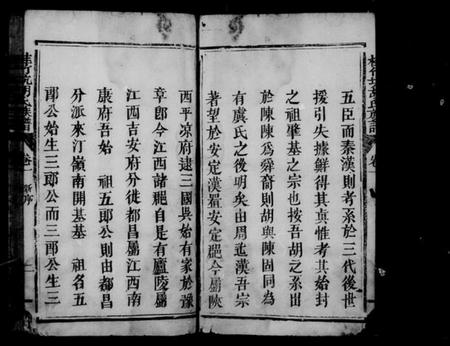 五臣而秦漢則考系於三代後世
援引失據鮮得其真惟考其始封
之祖肇基之宗也按吾胡之系出
於陳陳為舜裔則胡與陳固同為
有虞氏之後明矣由周迄漢吾宗
著望於安定漢羅安定郡今屬陝
西平凉府逮三國吳始有家於豫
章郎今江西諸郡自是有廬陵屬
江西吉安府分徙都昌屬江西南
康府吾始 祖五郎公則由都昌
分派來汀嶺南開基基 祖名五
郎公始生三郎公而三郎公生三
卷一